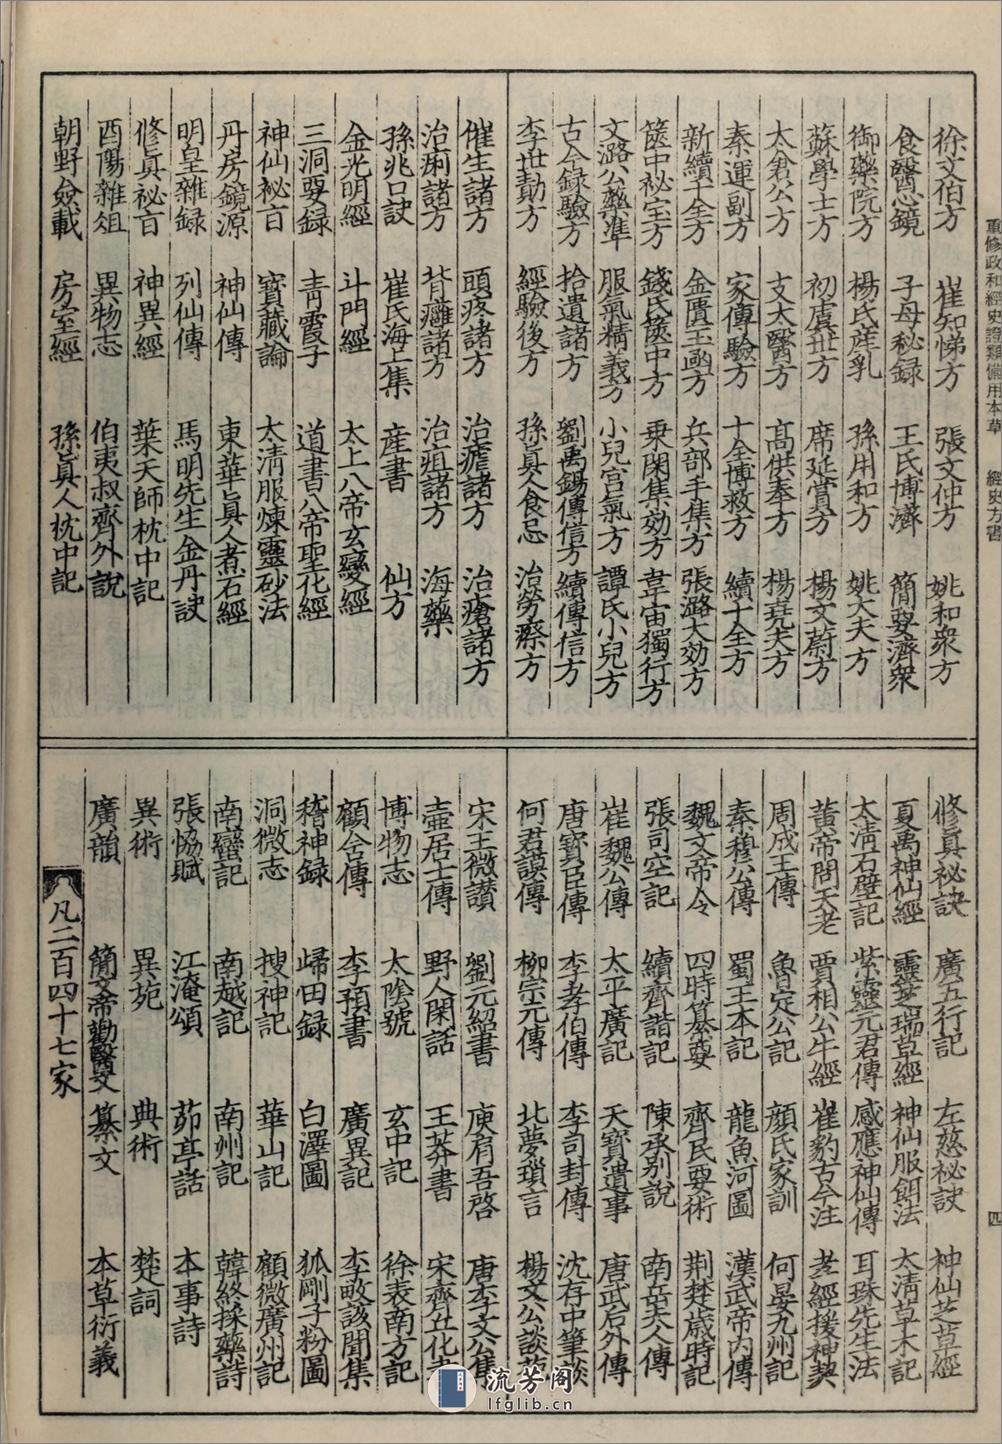 重修政和經史證類備用本草　經史方書　四
徐文伯方　崔知悌方　張文仲方　姚和衆方
食醫心鏡　子母秘録　王氏博濟　簡要濟衆
御藥院方　楊氏産乳　孫用和方　姚大夫方
蘇學士方　初虞世方　席延賞方　楊文蔚方
太倉公方　支太醫方　高供奉方　楊堯夫方
秦運副方　家傳驗方　十全博救方　續十全方
新續千全方　金匱玉函方　兵部手集方　張潞大効方
篋中祕宝方　錢氏篋中方　乗閑集効方　韋宙獨行方
文潞公藥準　服氣精義方　小兒宫氣方　譚氏小兒方
古今録驗方　拾遺諸方　劉禹錫傳信方　續傳信方
李世勣方　經驗後方　孫真人食忌　治勞瘵方
催生諸方　頭疼諸方　治瘧諸方　治瘡諸方
治痢諸方　背癰諸方　治疽諸方　海藥
孫兆口訣　崔氏海上集　産書　仙方
金光明經　斗門經　太上八帝玄變經
三洞要録　青霞子　道書八帝聖化經
神仙祕百　寶藏論　太清服煉靈砂法
丹房鏡源　神仙傳　東華真人煮石經
明皇雜録　列仙傳　馬明先生金丹訣
修真祕百　神異經　葉天師枕中記
酉陽雜俎　異物志　伯夷叔齊外說
朝野僉載　房室經　孫真人枕中記
修真祕訣　廣五行記　左慈秘訣　神仙芝草經
夏禹神仙經　靈芝瑞草經　神仙服餌法　太清草木記
太清石壁記　紫靈元君傳　感應神仙傳　耳珠先生法
黄帝問天老　賈相公牛經　崔豹古今注　孝經援神契
周成王傳　魯定公記　顔氏家訓　何晏九州記
秦穆公傳　蜀王本記　龍魚河圖　漢武帝内傳
魏文帝令　四時纂要　齊民要術　荆楚歳時記
張司空記　續齊諧記　陳承别説　南岳夫人傳
崔魏公傳　太平廣記　天寶遺事　唐武后外傳
唐寶臣傳　李孝伯傳　李司封傳　沈存中筆談
何君謨傳　柳宗元傳　北夢瑣言　楊文公談苑
宋王微讚　劉元紹書　庾肩吾啓　唐李文公集
壷居士傳　野人閑話　王莽書　宋齊丘化書
博物志　太陰號　玄中記　徐表南方記
顧含傳　李預書　廣異記　李畋該聞集
稽神録　歸田録　白澤圖　狐剛子粉圖
洞微志　搜神記　華山記　顧微廣州記
南蠻記　南越記　南州記　韓終採藥詩
張恊賦　江淹頌　茆亭話　本事詩
異術　異苑　典術　楚詞
廣韻　簡文帝勸醫文　纂文　本草衍義
凡二百四十七家
流芳阁
lfglib.cn